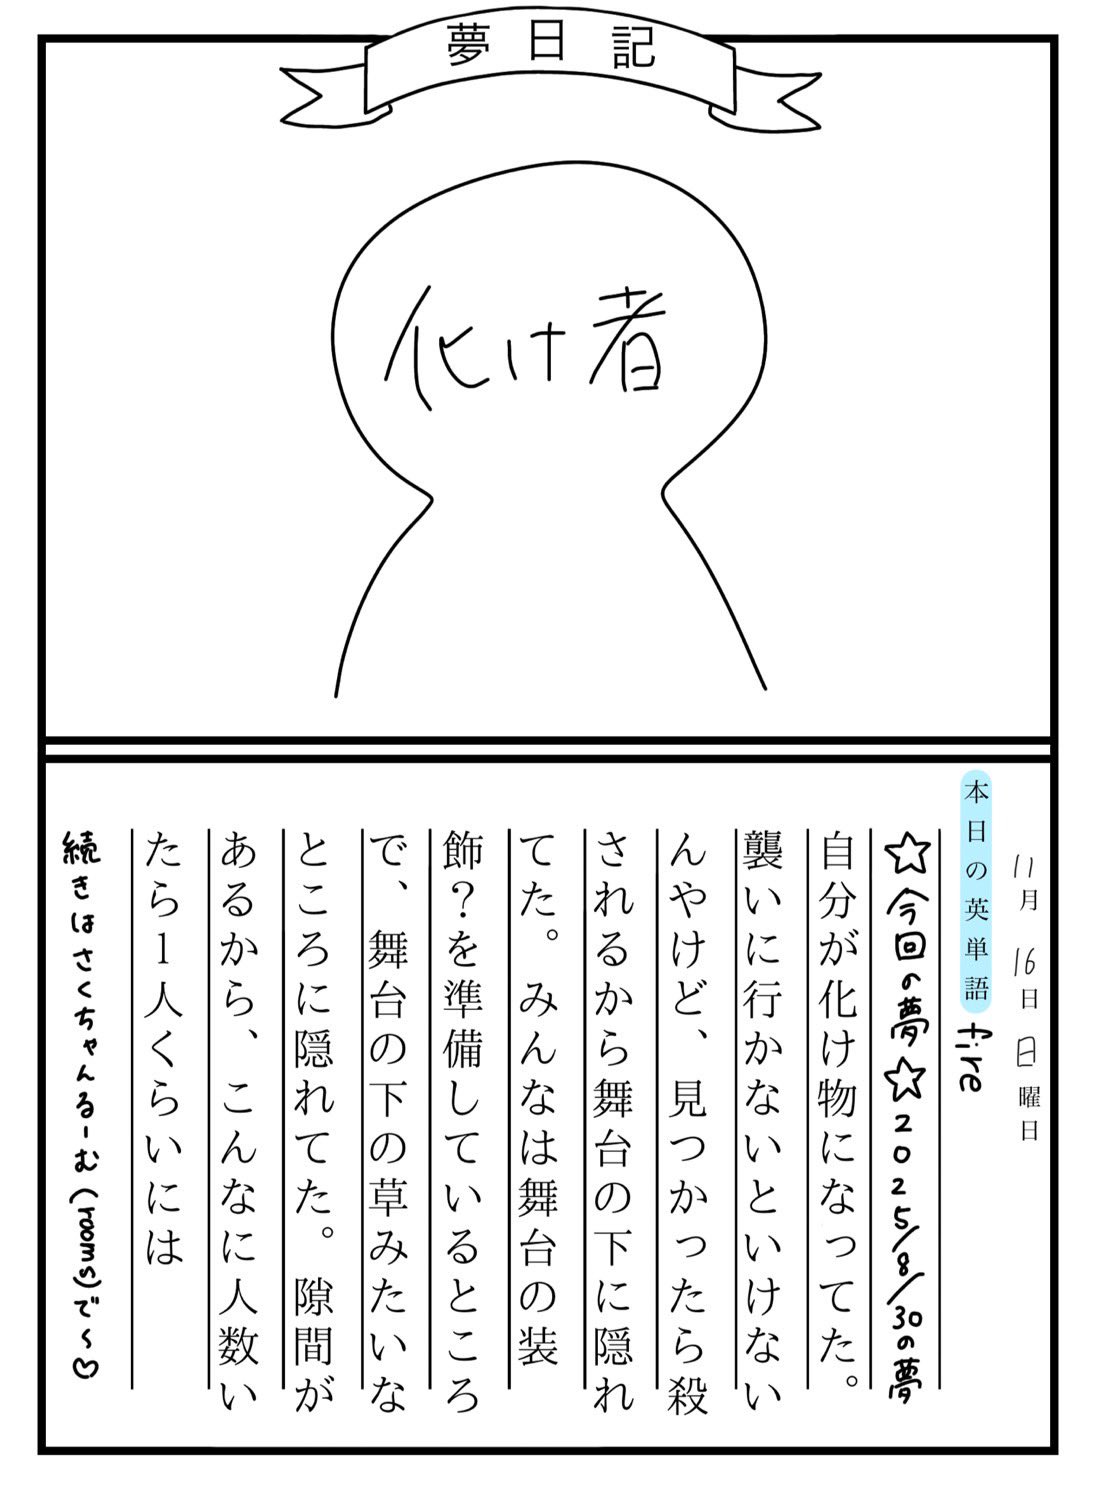 夢日記
化け者
11月 16日 日曜日
本日の英単語 fire
☆今回の夢☆2025/8/30の夢
自分が化け物になってた。
襲いに行かないといけない
んやけど、見つかったら殺
されるから舞台の下に隠れ
てた。みんなは舞台の装
飾?を準備しているところ
で、舞台の下の草みたいな
ところに隠れてた。隙間が
あるから、こんなに人数い
たら1人くらいには
続きはさくちゃんるーむ(rooms)で〜♡